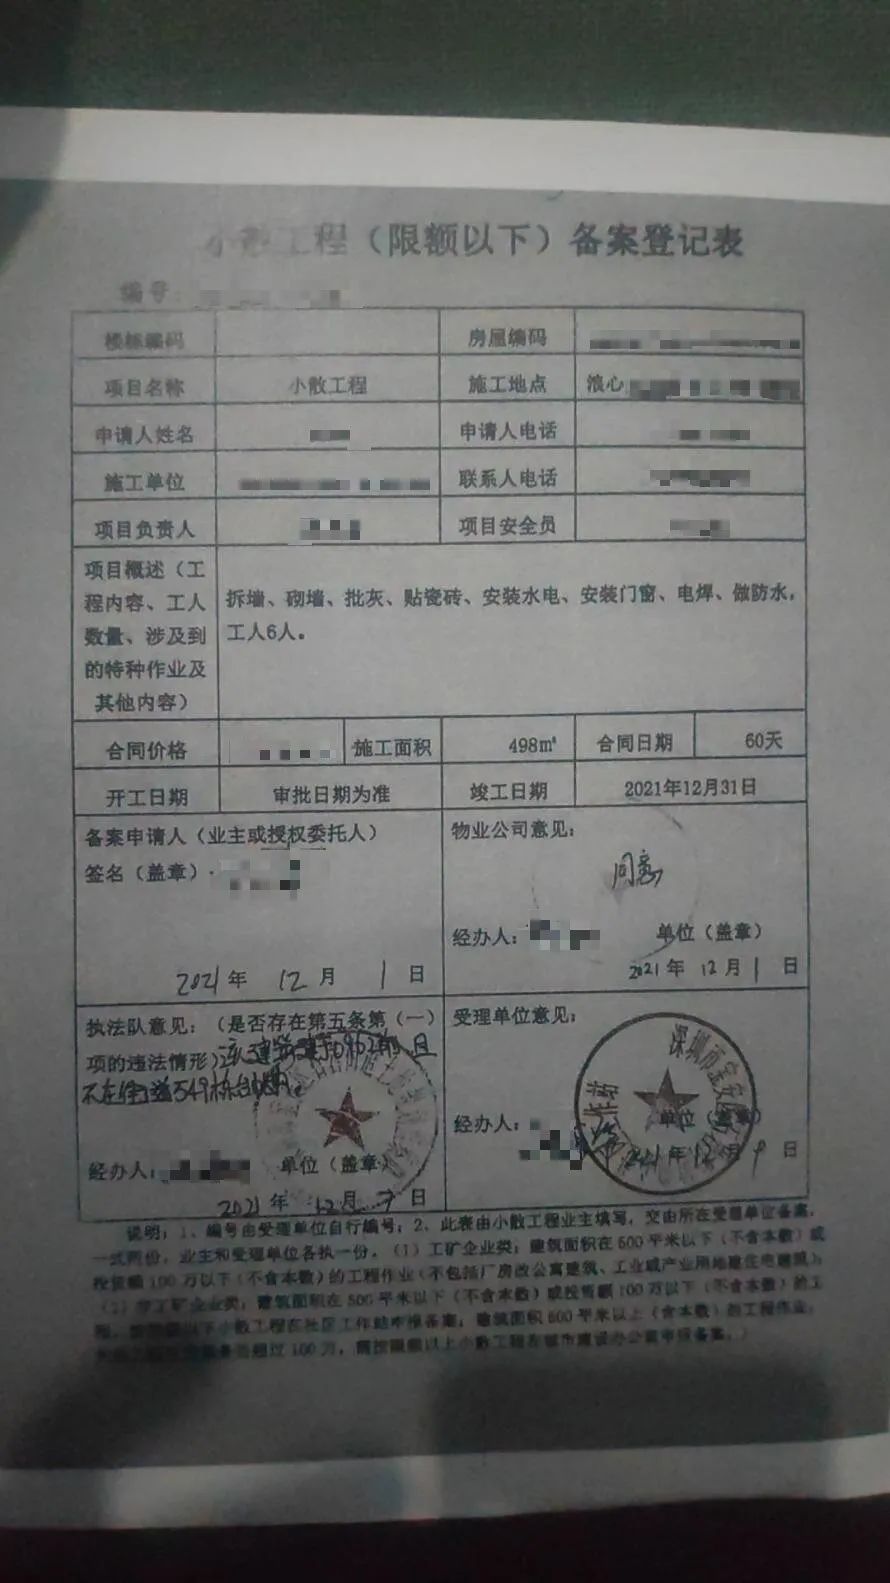 小散工程（限额以下）备案登记表
编号：
楼栋编码 房屋编码
项目名称 小散工程 施工地点 浪心
申请人姓名 申请人电话
施工单位 联系人电话
项目负责人 项目安全员
项目概述（工
程内容、工人
数量、涉及到
的特种作业及
其他内容）
拆墙、砌墙、批灰、贴瓷砖、安装水电、安装门窗、电焊、做防水，
工人6人。
合同价格 施工面积 498㎡ 合同日期 60天
开工日期 审批日期为准 竣工日期 2021年12月31日
备案申请人（业主或授权委托人）
签名（盖章）
2021年 12月 1日
物业公司意见：
同意
经办人： 单位（盖章）
2021年 12月 1日
执法队意见：（是否存在第五条第（一）
项的违法情形）
经办人： 单位（盖章）
2021年 12月 7日
受理单位意见：
深圳市宝安区
经办人： 单位（盖章）
年 12月 9日
说明：1、编号由受理单位自行编号；2、此表由小散工程业主填写，交由所在受理单位备案，
一式两份，业主和受理单位各执一份。（1）工矿企业类：建筑面积在500平米以下（不含本数）或
投资额100万以下（不含本数）的工程作业（不包括厂房改公寓建筑、工业或产业用地建住宅
企业类：建筑面积在500平米以下（不含本数）或投资额100万以下（不含本数）的工
以下小散工程在社区工作站申报备案；建筑面积 平米以上（含本数）的工程作业，
超过100万，需按限额以上小散工程在城市建设办公室申报备案。）